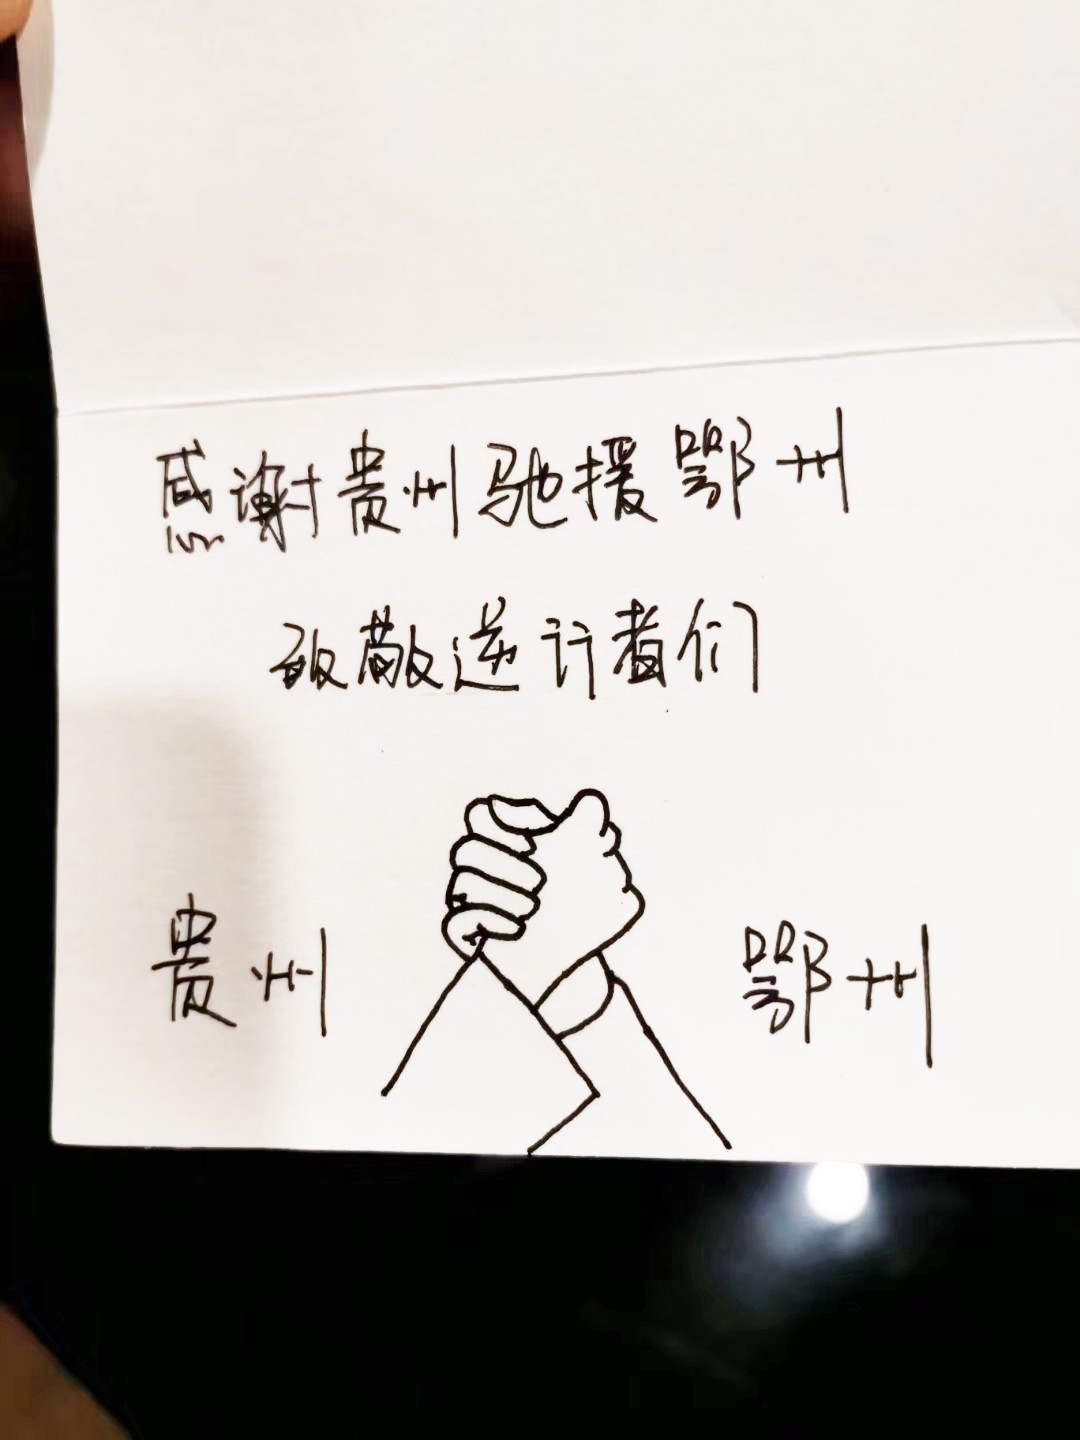 感谢贵州驰援鄂州
致敬逆行者们
贵州
鄂州